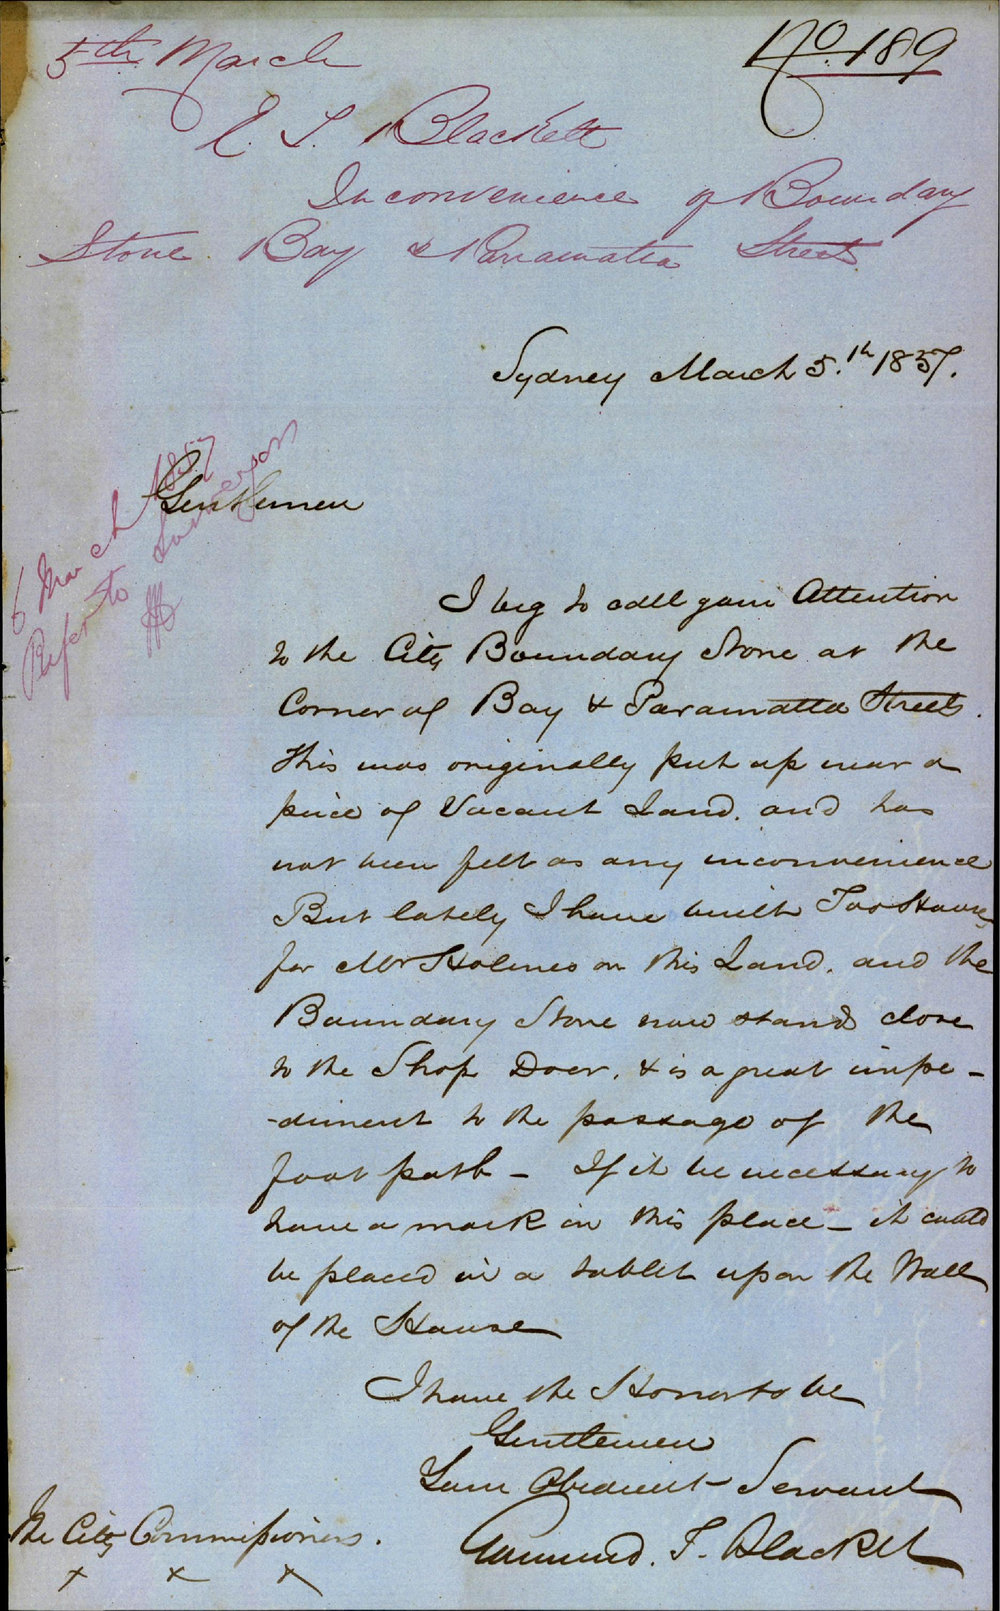 5th March
No. 189
E. T. Blackett
Inconvenience of Boundary
Stone Bay & Parramatta Street
Sydney March 5.th 1857.
6 March 1857
Refer to Surveyor
Gentlemen
I beg to call your Attention
to the City Boundary Stone at the
Corner of Bay & Paramatta Streets.
This was originally put up near a
peice of Vacant Land. and has
not been felt as any inconvenience
But lately I have built Two Houses
for Mr Holmes on this Land. and the
Boundary Stone now stands close
to the Shop Door. & is a great impe-
-diment to the passage of the
foot path - If it be necessary to
have a mark in this place - it could
be placed in a tablet upon the Wall
of the House
I have the Honor to be
Gentlemen
Your Obedient Servant
Edmund. T. Blacket
The City Commissioners.
x x x